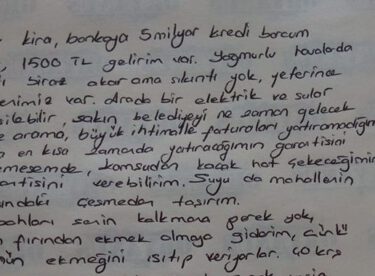 kira, bankaya 5 milyar kredi borcum
, 1500 TL gelirim var. Yağmurlu havalarda
biraz akar ama sıkıntı yok, yeterince
var. Arada bir elektrik ve sular
silebilir, sakın belediyeyi ne zaman gelecek
e arama, büyük ihtimalle faturaları yatıramadığım
en kısa zamanda yatıracağımın garantisini
emesemde, komşudan kaçak hat çekeceğimin
antisini verebilirim. Suyu da mahallenin
ındaki çeşmeden taşırım.
bahları senin kalkmana gerek yok,
fırından ekmek almaya giderim, çünkü
ekmeğini ısıtıp veriyorlar. 40 krş